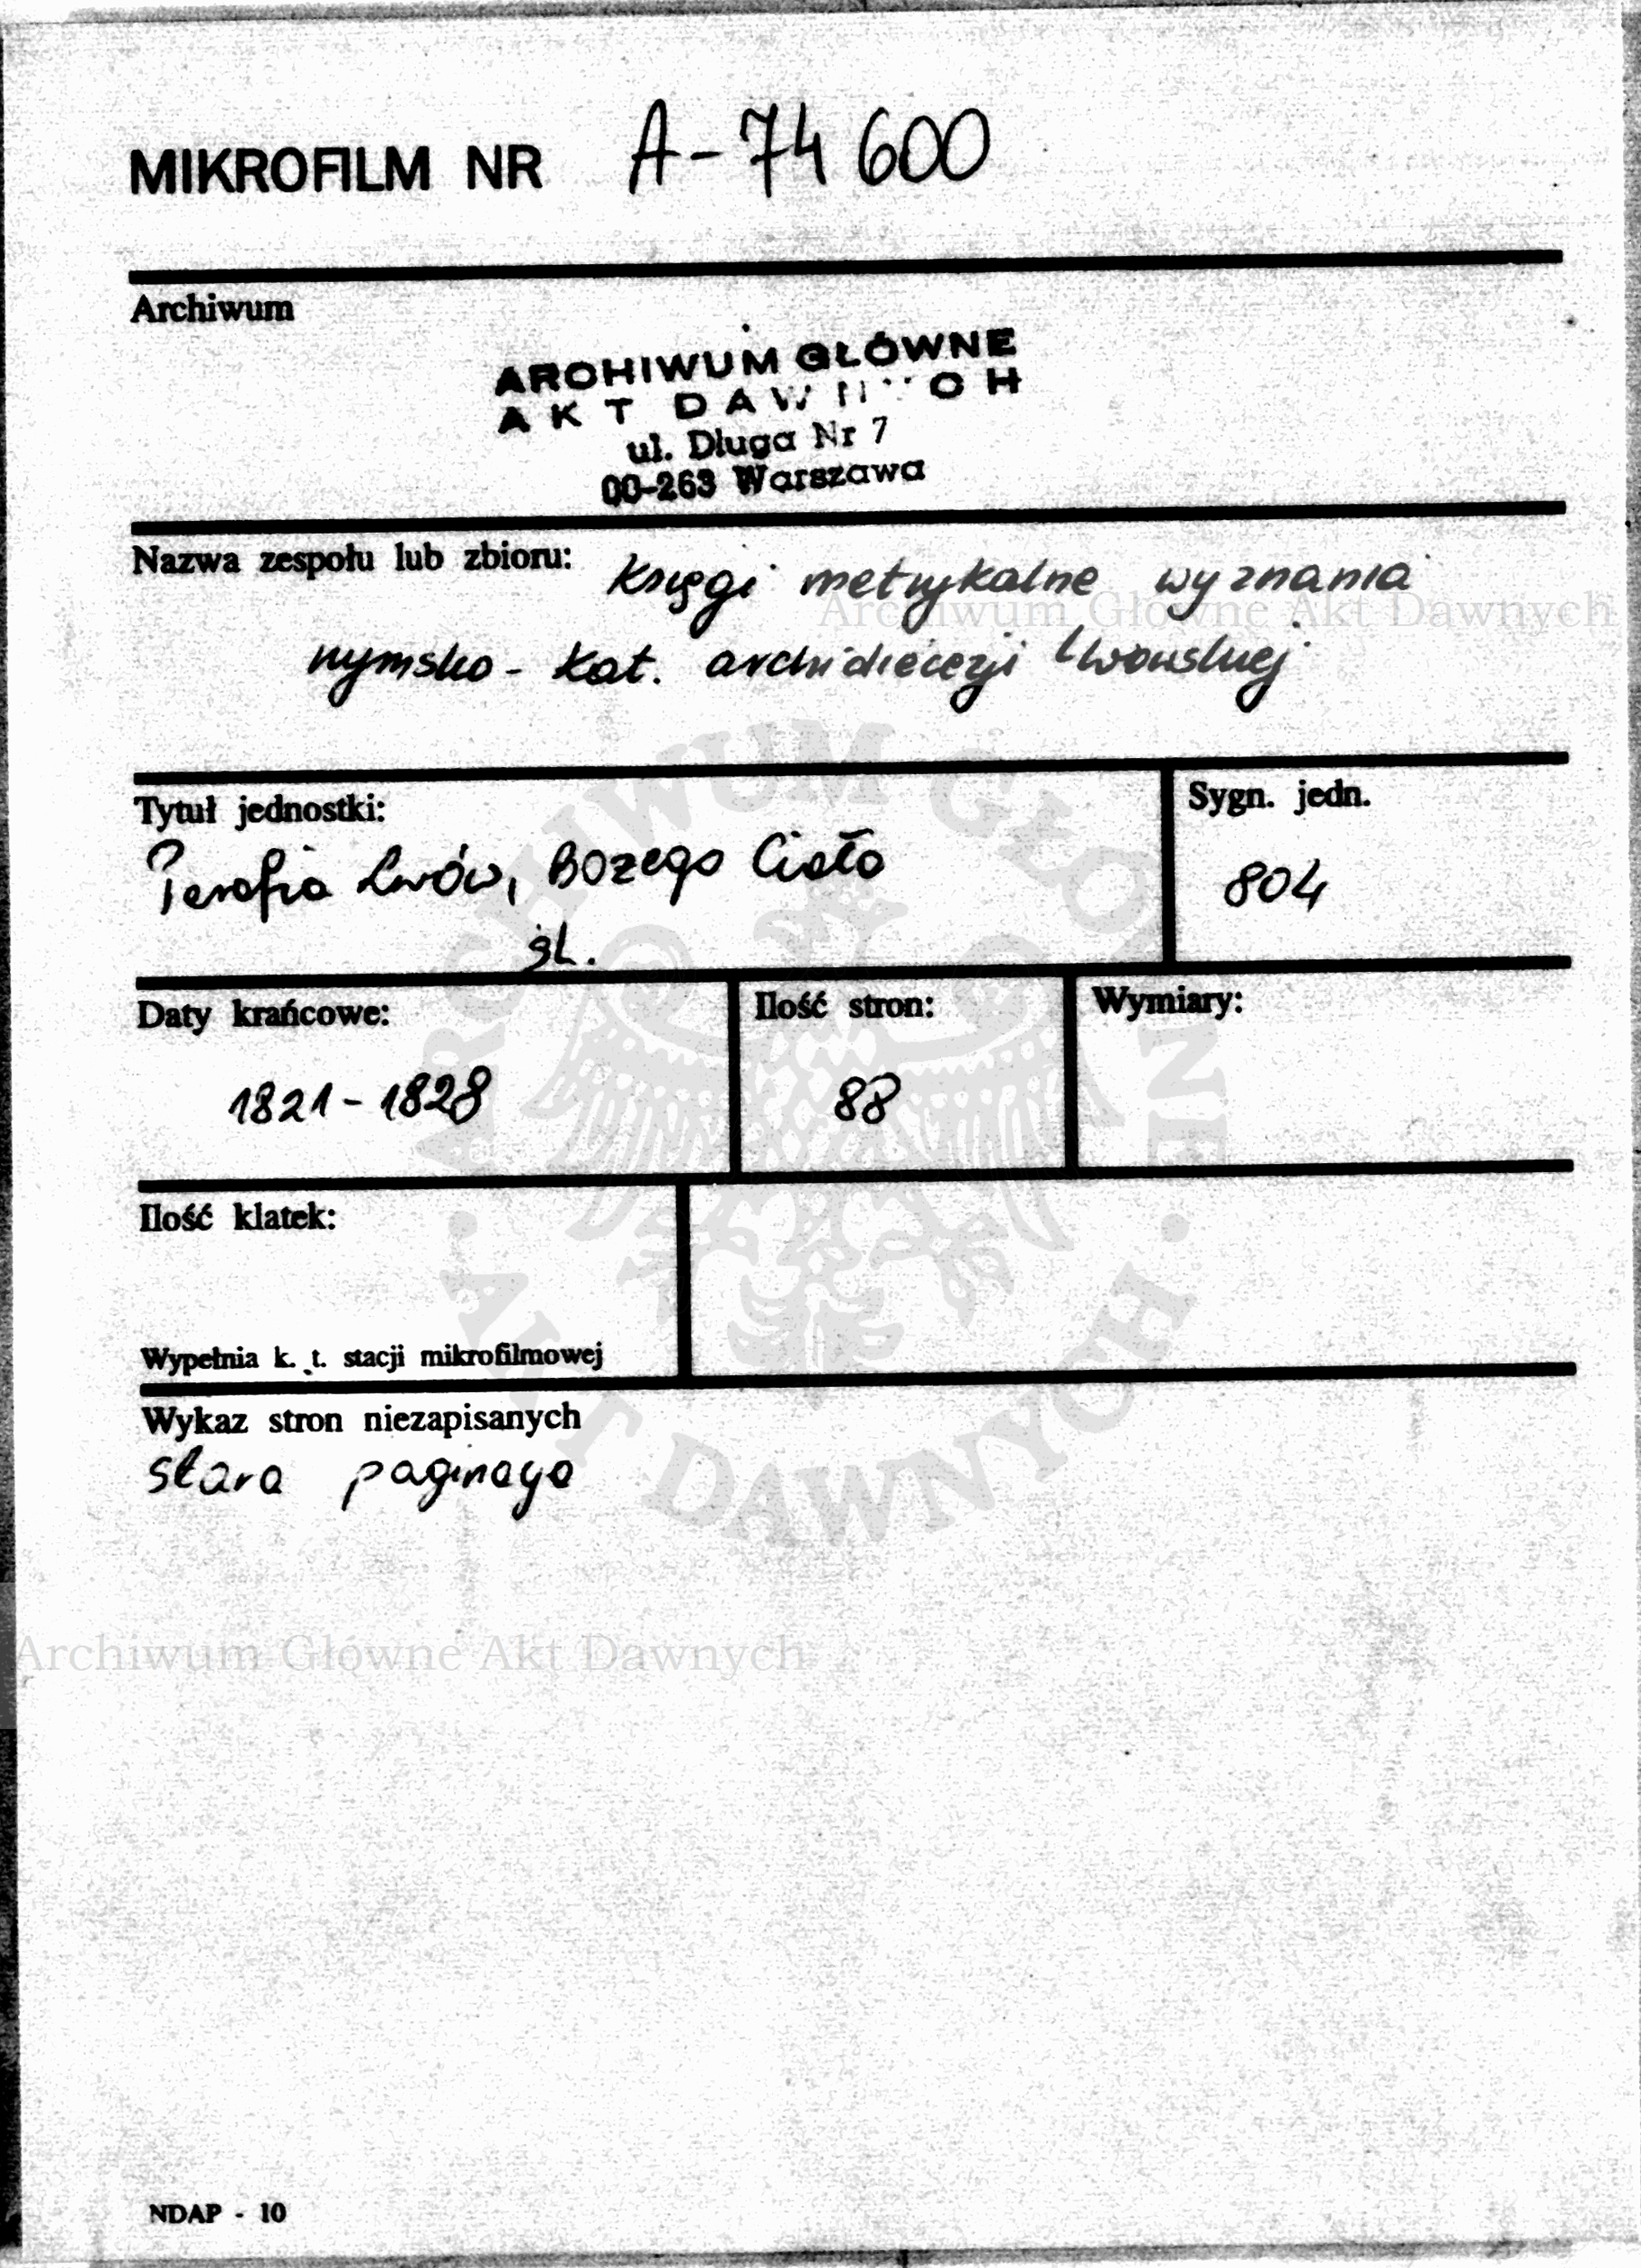 MIKROFILM NR A-74 600
Archiwum
ARCHIWUM GŁÓWNE
AKT DAWNYCH
ul. Długa Nr 7
00-263 Warszawa
Nazwa zespołu lub zbioru: Księgi metrykalne wyznania
rzymsko-kat. archidiecezji Lwowskiej
Archiwum Główne Akt Dawnych
Tytuł jednostki:
Parafia Lwów, Bożego Ciało
Sygn. jedn.
804
Daty krańcowe:
1821-1828
Ilość stron:
88
Wymiary:
Ilość klatek:
Wypełnia k. t. stacji mikrofilmowej
Wykaz stron niezapisanych
stara paginacja
ARCHIWUM GŁÓWNE · AKT DAWNYCH ·
Archiwum Główne Akt Dawnych
NDAP - 10